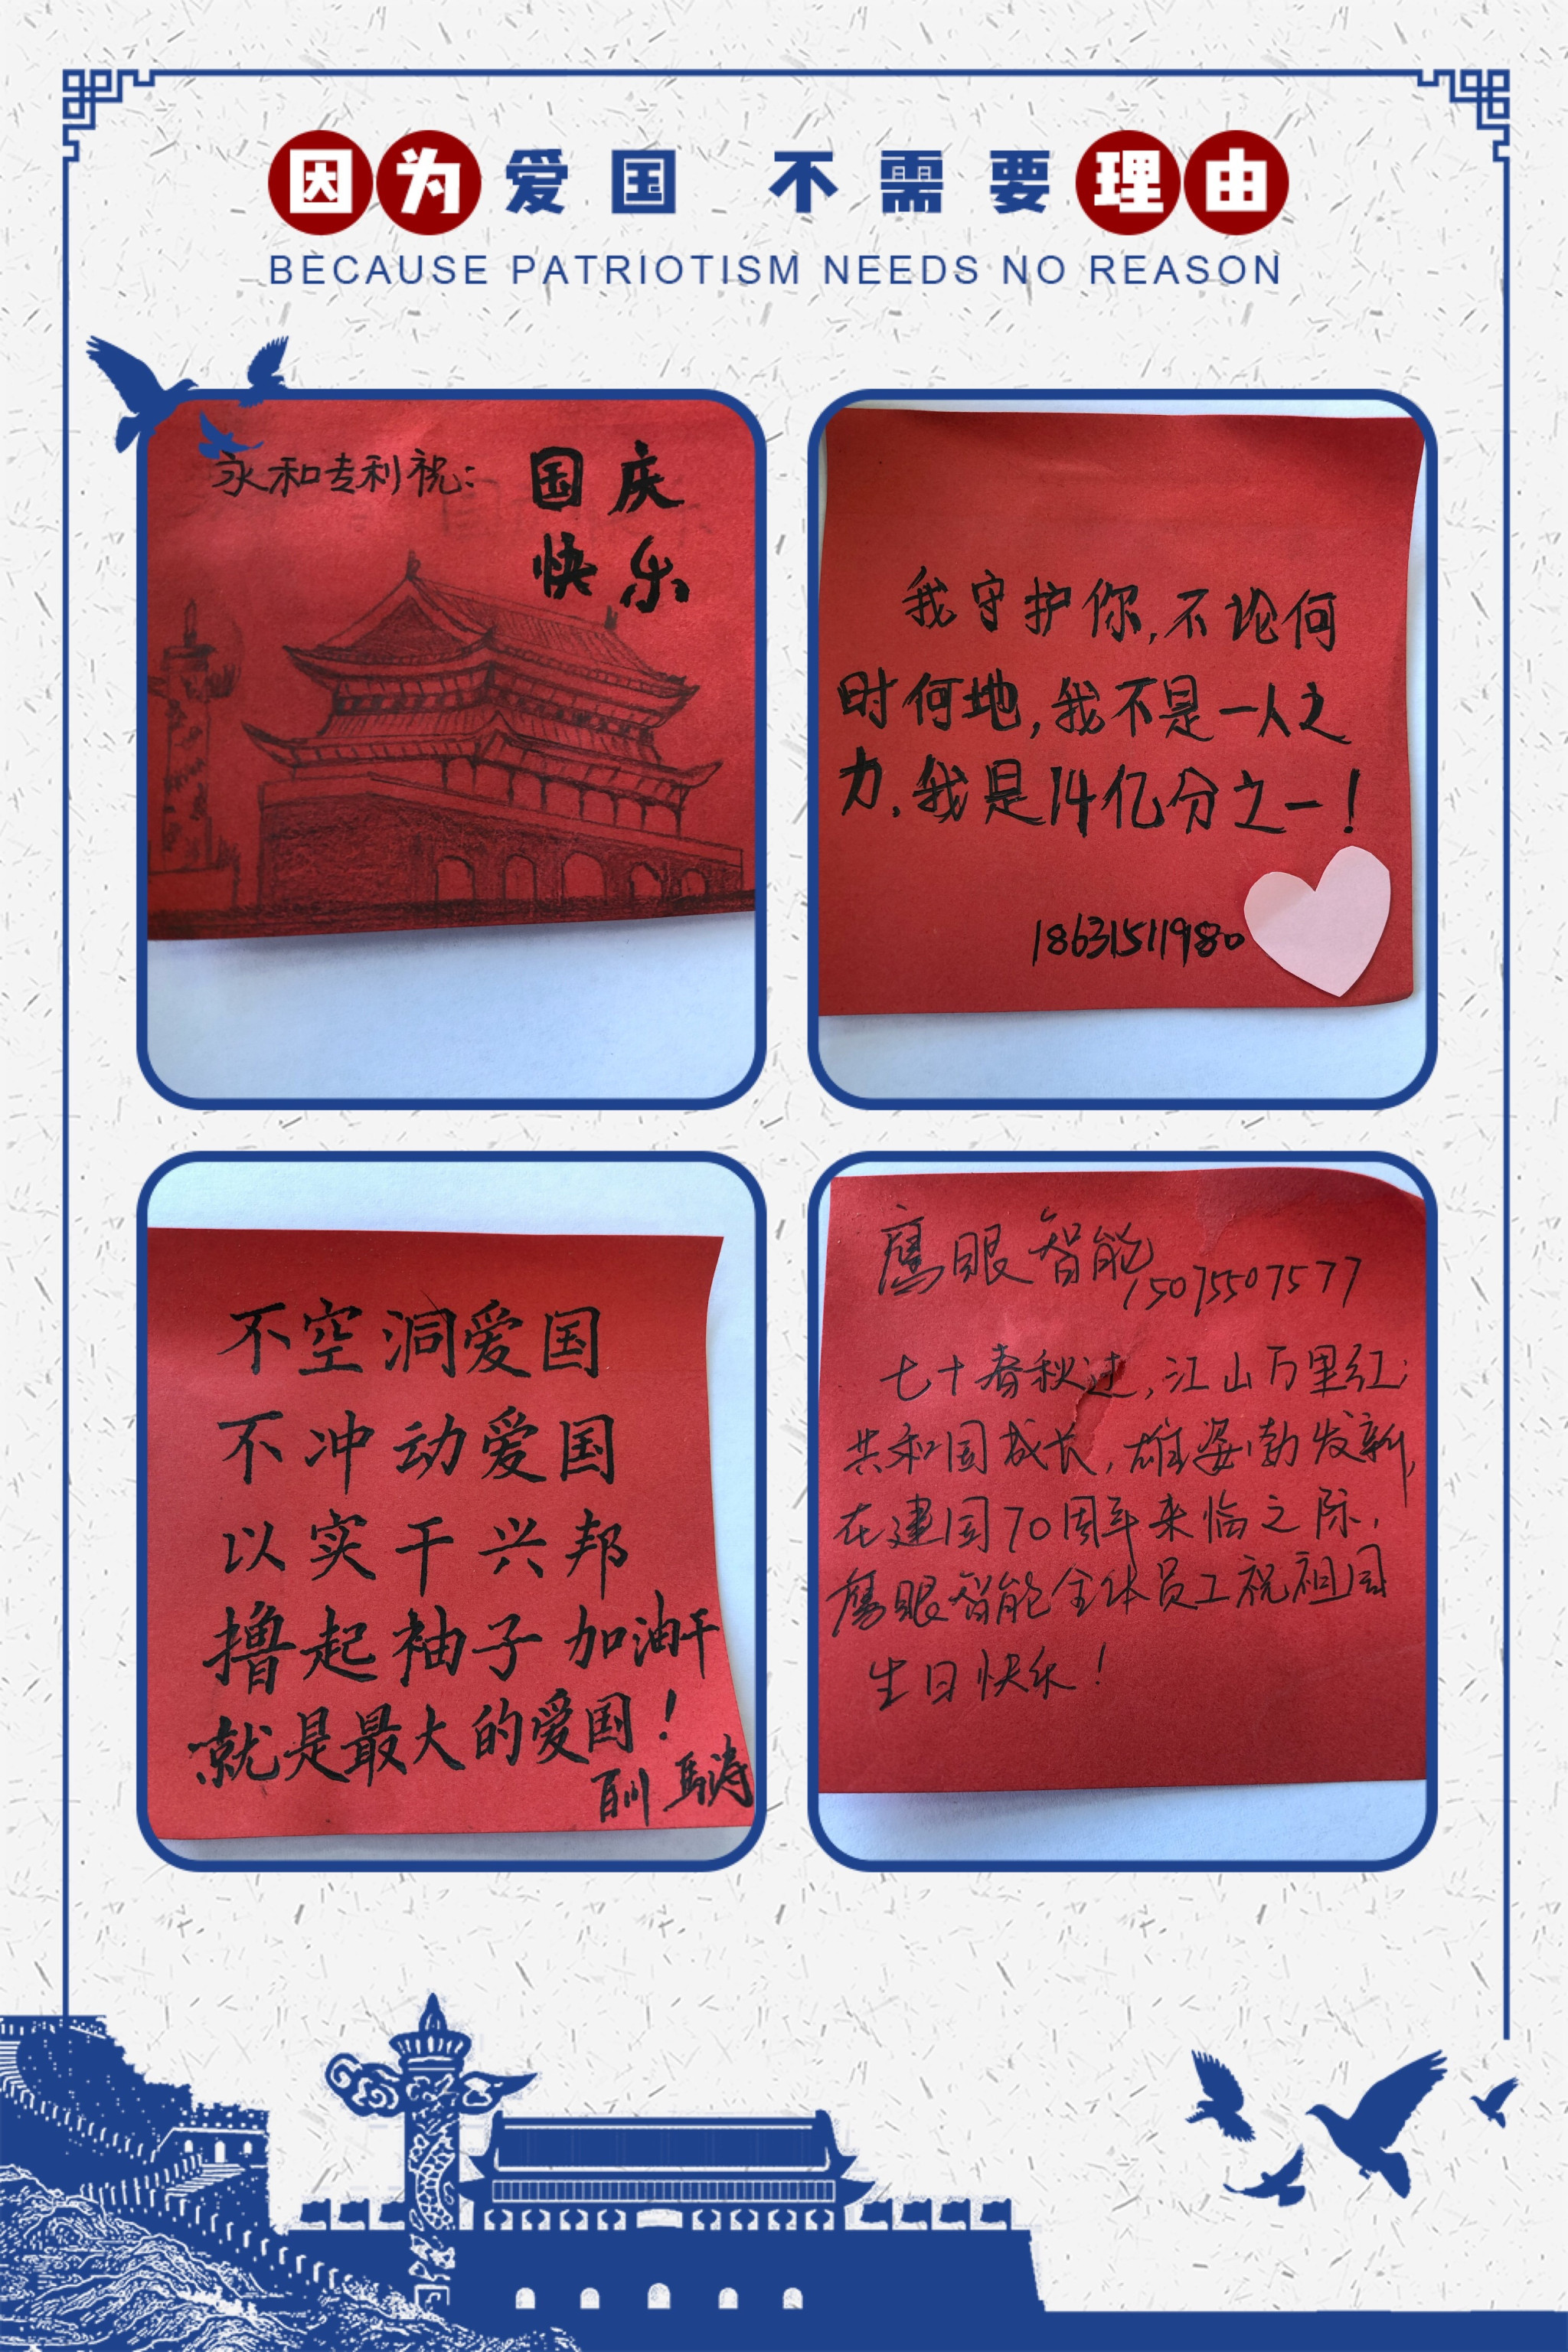 因为爱国 不需要理由
BECAUSE PATRIOTISM NEEDS NO REASON
永和专利祝：
国庆
快乐
我守护你,不论何
时何地,我不是一人之
力.我是14亿分之一！
18631511980
不空洞爱国
不冲动爱国
以实干兴邦
撸起袖子加油干
就是最大的爱国！
鹰眼智能
15075507577
七十春秋过,江山万里红;
共和国成长,雄姿勃发新,
在建国70周年来临之际,
鹰眼智能全体员工祝祖国
生日快乐！